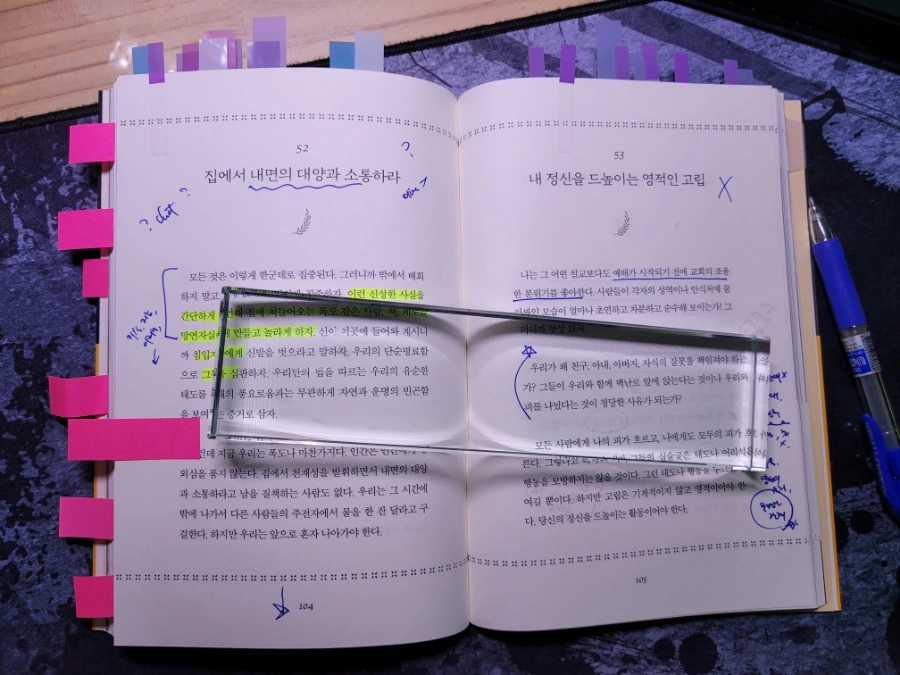 52
집에서 내면의 대양과 소통하라
?
?
모든 것은 이렇게 한군데로 집중된다. 그러니까 밖에서 배회
하지 말고 이런 신성한 사실을
간단하게
망연자실하게 만들고 놀라게 하자. 신이 이곳에 들어와 계시니
까 침입자에게 신발을 벗으라고 말하자. 우리의 단순명료함
으로 심판하자. 우리만의 법을 따르는 우리의 유순한
태도를 풍요로움과는 무관하게 자연과 운명의 빈곤함
을 보여 증거로 삼자.
지금 우리는 폭도나 마찬가지다. 인간은
외심을 품지 않는다. 집에서 천재성을 발휘하면서 내면의 대양
과 소통하라고 남을 질책하는 사람도 없다. 우리는 그 시간에
밖에 나가서 다른 사람들의 주전자에서 물을 한 잔 달라고 구
걸한다. 하지만 우리는 앞으로 혼자 나아가야 한다.
104
53
내 정신을 드높이는 영적인 고립
X
나는 그 어떤 설교보다도 예배가 시작되기 전에 교회의 조용
한 분위기를 좋아한다. 사람들이 각자의 성역이나 안식처에 둘
모습이 얼마나 초연하고 차분하고 순수해 보이는가! 그
우리가 왜 친구, 아내, 아버지, 자식의 잘못을 책임져야 하는
가? 그들이 우리와 함께 벽난로 앞에 앉는다는 것이나 우리와
피를 나눴다는 것이 정당한 사유가 되는가?
모든 사람에게 나의 피가 흐르고, 나에게도 모두의 피가 흐
른다. 그렇다고 심술궂은 태도나
행동을 모방하지는 않을 것이다. 그런 태도나 행동을
여길 뿐이다. 하지만 고립은 기계적이지 않고 영적이어야 한
다. 당신의 정신을 드높이는 활동이어야 한다.
105